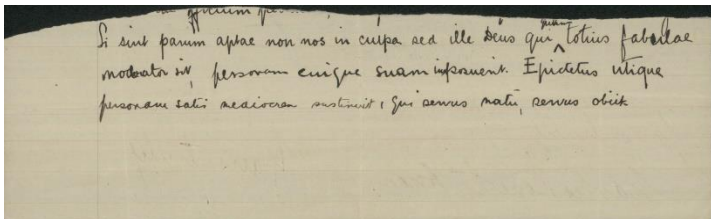 Si sint parum aptae non nos in culpa sed ille Deus qui quum totius fabulae
moderator sit, personam cuique suam imposuerit. Epictetus utique
personam satis mediocrem sustinuit, qui servus natus, servus obiit